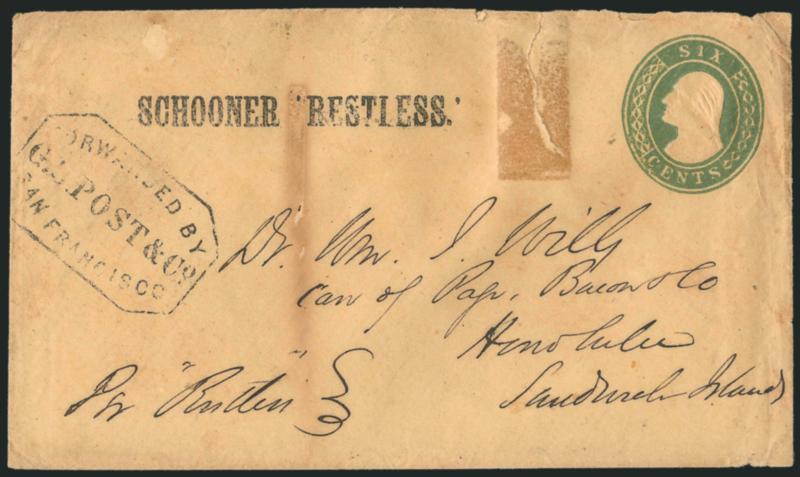 SCHOONER 'RESTLESS.'
SIX
CENTS
FORWARDED BY
G.L. POST & Co.
SAN FRANCISCO
Dr. Wm. J. Wills
Care of Page, Bacon & Co
Honolulu
Sandwich Islands
Per "Restless"